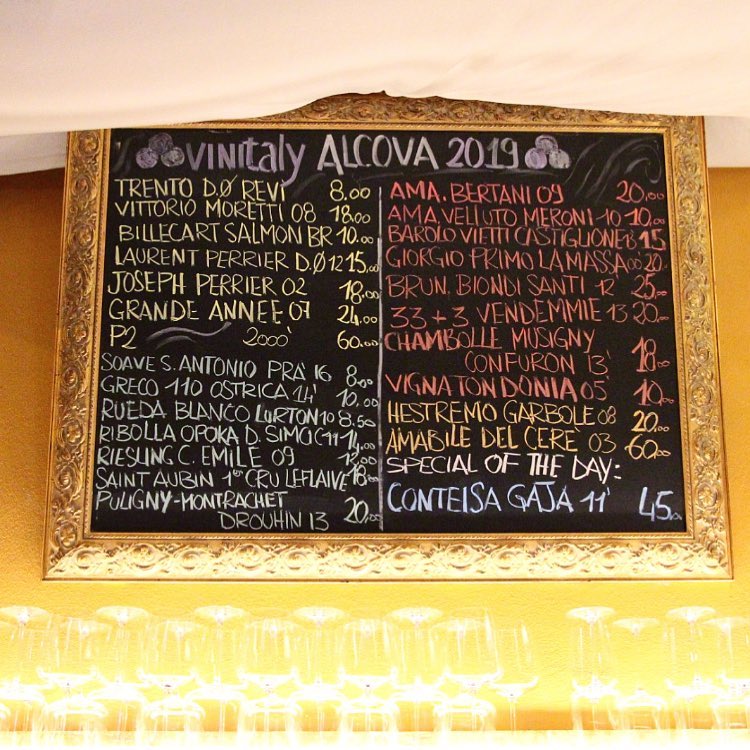 VINITALY ALCOVA 2019
TRENTO D.Ø REVÌ 8.00
VITTORIO MORETTI 08 18.00
BILLECART SALMON BR 10.00
LAURENT PERRIER D.Ø 12 15.00
JOSEPH PERRIER 02 18.00
GRANDE ANNEE 07 24.00
P2 2000' 60.00
SOAVE S. ANTONIO PRÀ 16 8.00
GRECO 110 OSTRICA 14' 10.00
RUEDA BLANCO LURTON 10 8.50
RIBOLLA OPOKA D. SIMCIC 11 14.00
RIESLING C. EMILE 09 12.00
SAINT AUBIN 1er CRU LEFLAIVE 18.00
PULIGNY-MONTRACHET
DROUHIN 13 20.00
AMA. BERTANI 09 20.00
AMA. VELLUTO MERONI 10 10.00
BAROLO VIETTI CASTIGLIONE 13 15
GIORGIO PRIMO LA MASSA 00 20.
BRUN. BIONDI SANTI 12 25.00
33+3 VENDEMMIE 13 20.00
CHAMBOLLE MUSIGNY
CONFURON 13' 18.00
VIGNA TONDONIA 05' 10.00
HESTREMO GARBOLE 08 20.00
AMABILE DEL CERÈ 03 60.00
SPECIAL OF THE DAY:
CONTEISA GAJA 11' 45.00